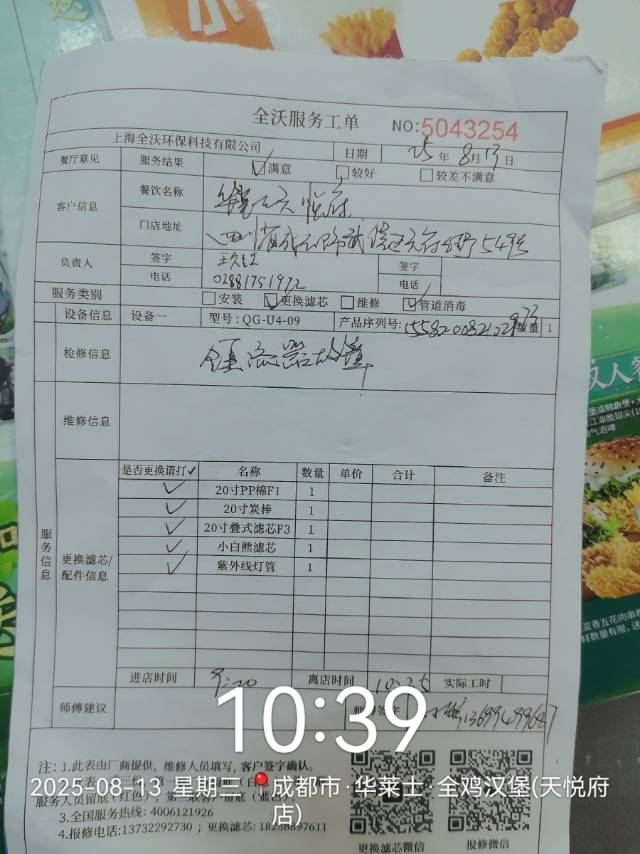 全沃服务工单
NO:5043254
上海全沃环保科技有限公司 日期 25年8月13日
餐厅意见 服务结果 ✓满意 □较好 □较差不满意
客户信息 餐饮名称
门店地址 549号
负责人 签字 签字
电话 02881751972 电话
服务类别 □安装 ✓更换滤芯 □维修 ✓管道消毒
设备信息 设备一 型号:QG-U4-09 产品序列号: 数量 1
检修信息
维修信息
服务信息
更换滤芯/配件信息
是否更换请打✓ 名称 数量 单价 合计 备注
✓ 20寸PP棉F1 1
✓ 20寸炭棒 1
✓ 20寸叠式滤芯F3 1
✓ 小白熊滤芯 1
✓ 紫外线灯管 1
进店时间 9:20 离店时间 10:25 实际工时
师傅建议
10:39
注:1.此表由厂商提供,维修人员填写,客户签字确认。
2025-08-13 星期三 成都市·华莱士·全鸡汉堡(天悦府店)
3.全国服务热线:4006121926
4.报修电话:13732292730 ;更换滤芯:18258897611
更换滤芯微信 报修微信